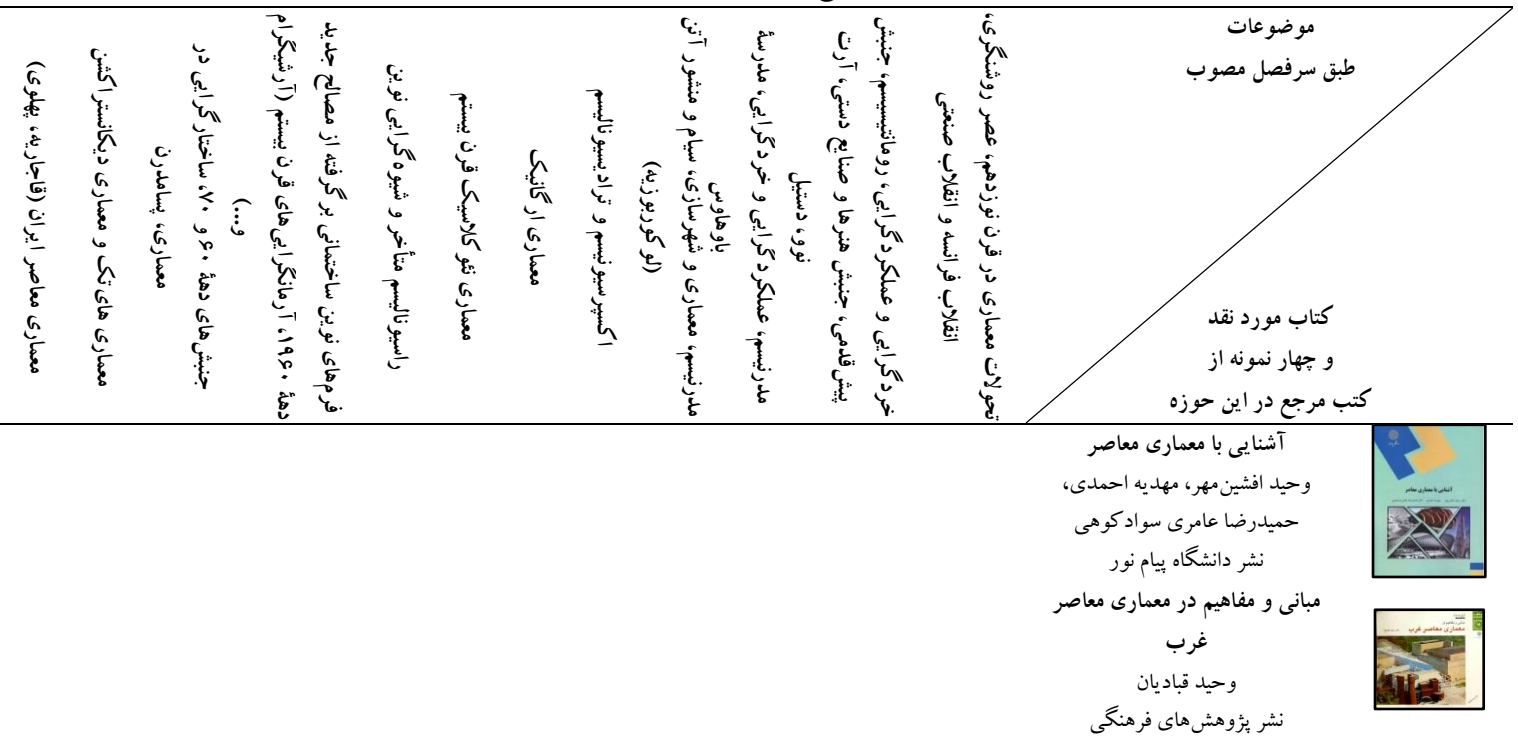 موضوعات
طبق سرفصل مصوب
کتاب مورد نقد
و چهار نمونه از
کتب مرجع در این حوزه
تحولات معماری در قرن نوزدهم، عصر روشنگری،
انقلاب فرانسه و انقلاب صنعتی
خردگرایی و عملکردگرایی، رومانتیسیسم، جنبش
پیش‌قدمی، جنبش هنرها و صنایع دستی، آرت
نوو، دستیل
مدرنیسم، عملکردگرایی و خردگرایی، مدرسۀ
باوهاوس
مدرنیسم، معماری و شهرسازی، سیام و منشور آتن
(لوکوربوزیه)
اکسپرسیونیسم و ترادیسیونالیسم
معماری ارگانیک
معماری نئوکلاسیک قرن بیستم
راسیونالیسم متأخر و شیوه‌گرایی نوین
فرم‌های نوین ساختمانی برگرفته از مصالح جدید
دهۀ ۱۹۶۰، آرمانگرایی‌های قرن بیستم (آرشیگرام
و...)
جنبش‌های دهۀ ۶۰ و ۷۰، ساختارگرایی در
معماری، پسامدرن
معماری های‌تک و معماری دیکانستراکشن
معماری معاصر ایران (قاجاریه، پهلوی)
آشنایی با معماری معاصر
وحید افشین‌مهر، مهدیه احمدی،
حمیدرضا عامری سوادکوهی
نشر دانشگاه پیام نور
آشنایی با معماری معاصر
مبانی و مفاهیم در معماری معاصر
غرب
وحید قبادیان
نشر پژوهش‌های فرهنگی
معماری معاصر غرب